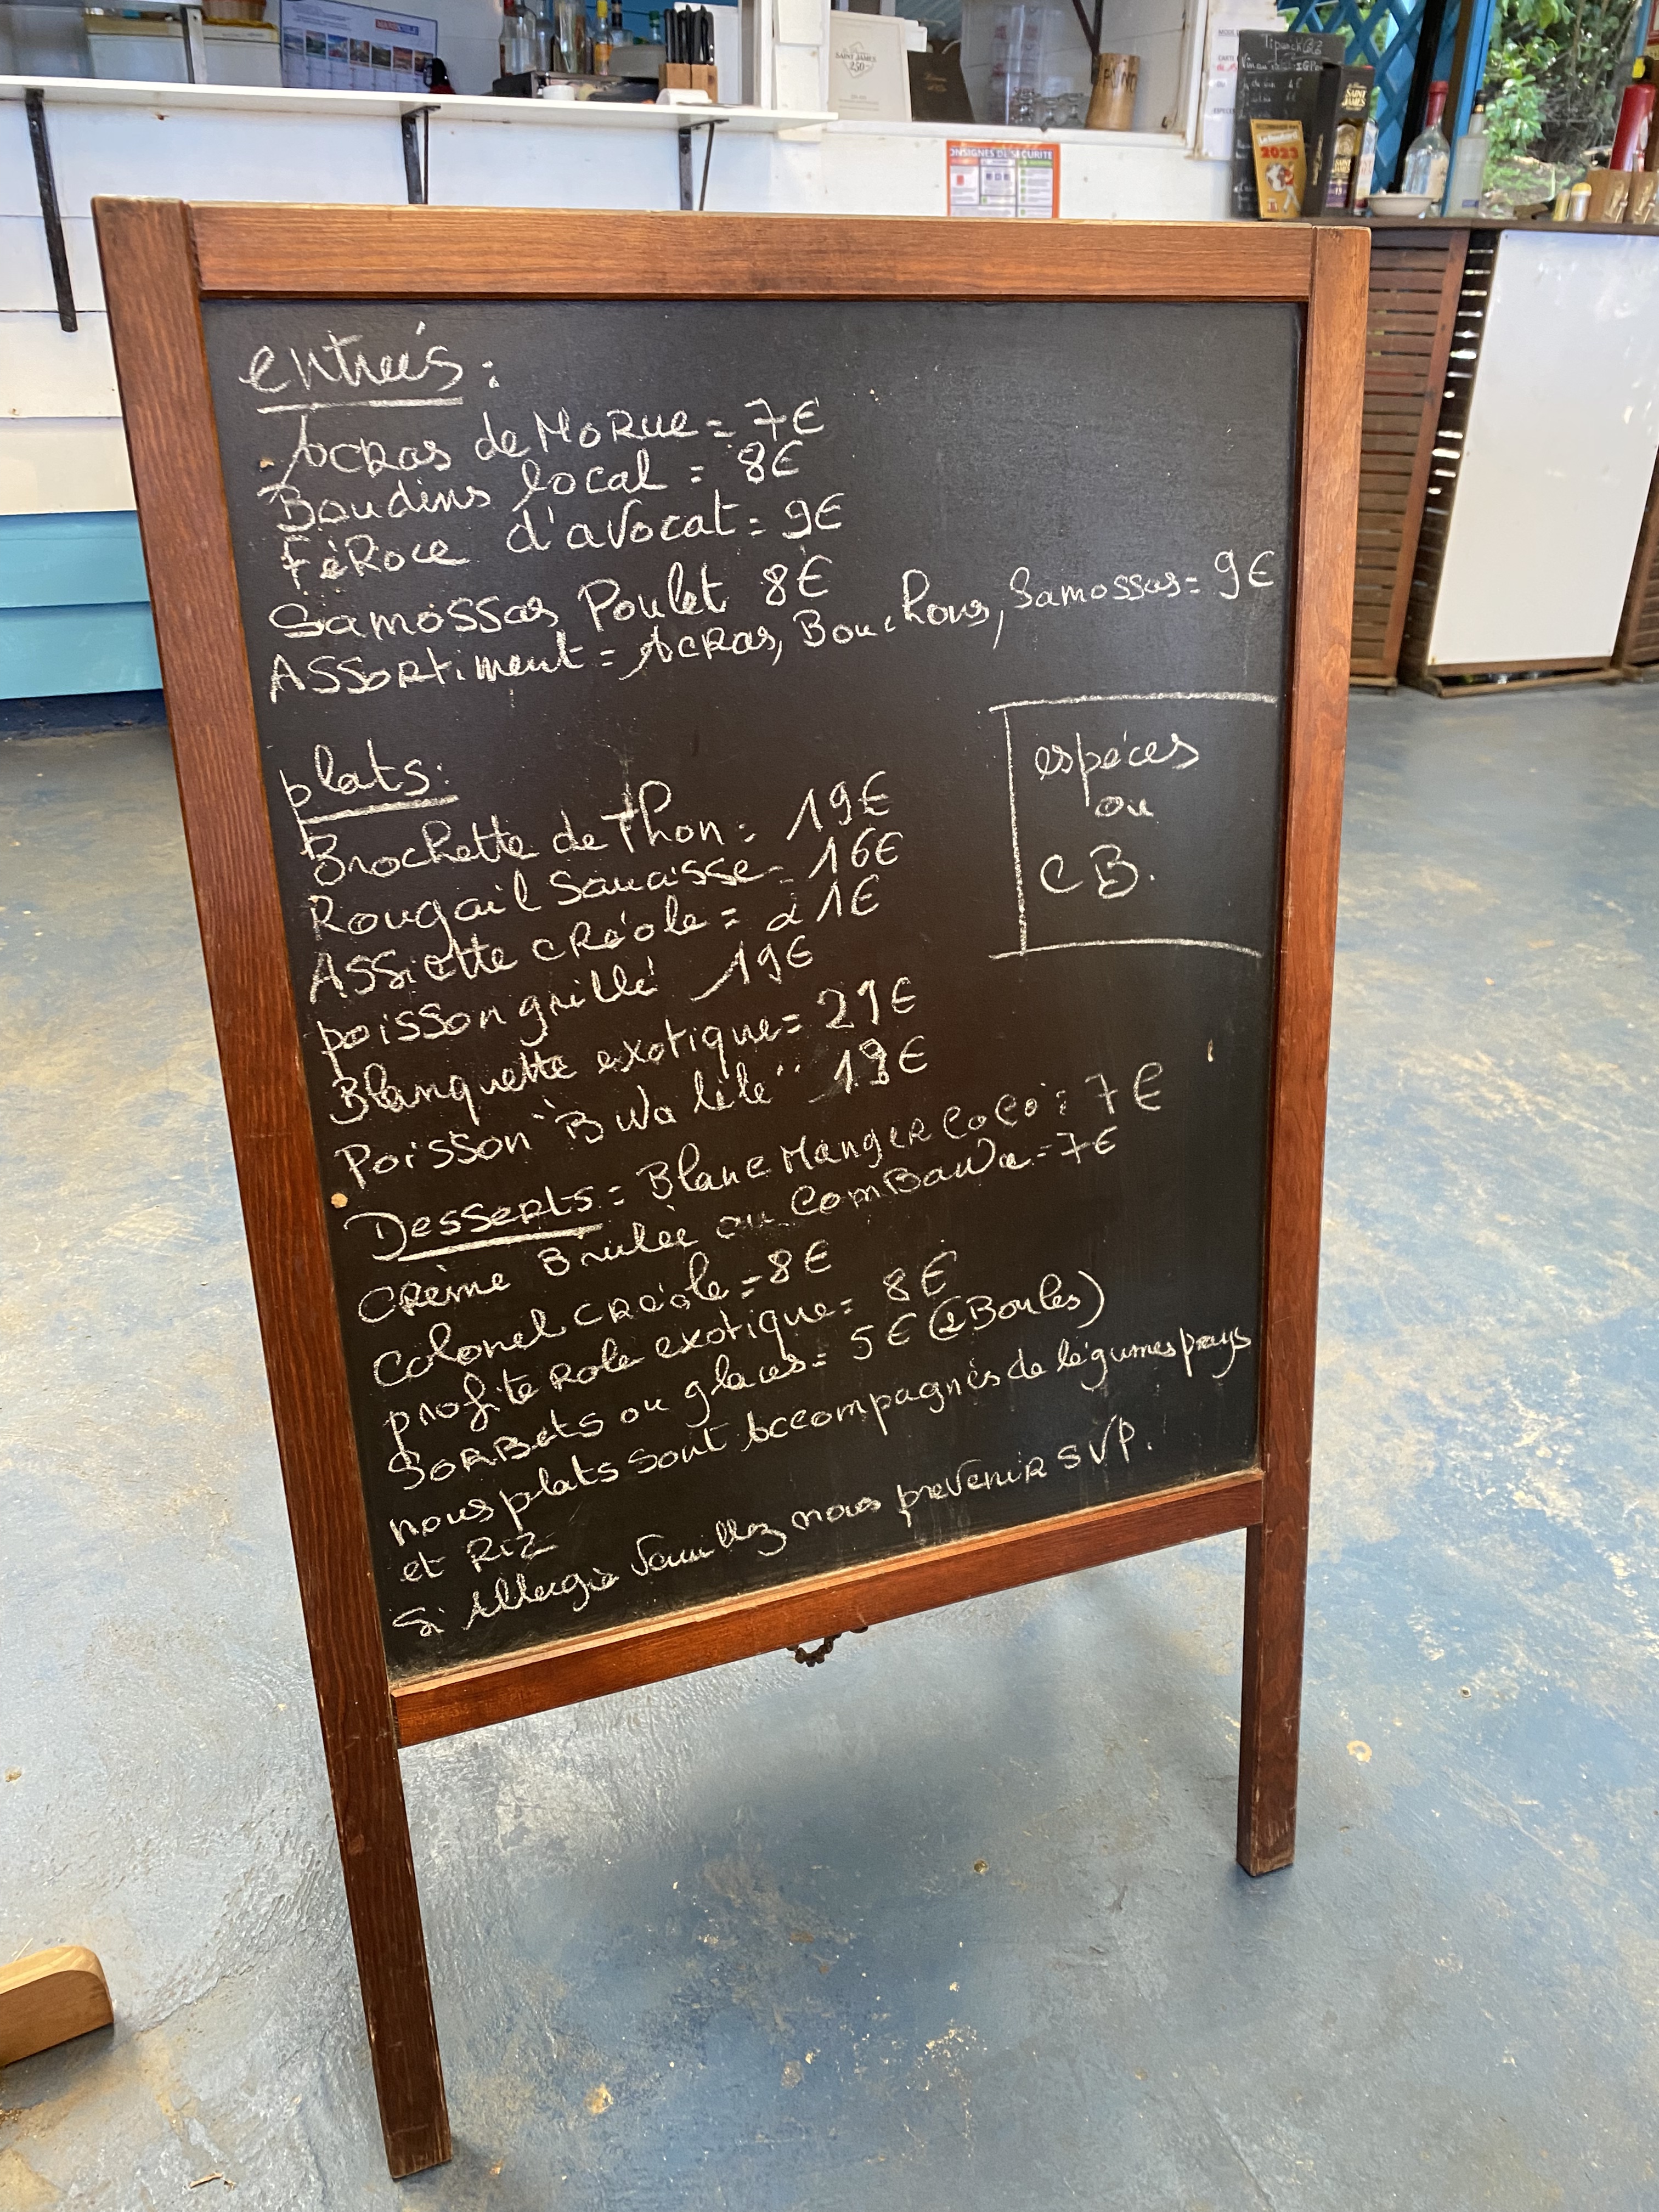 SAINT JAMES
250
PUNCH
CONSIGNES DE SECURITE
2023
SAINT JAMES
entrées :
Acras de Morue = 7€
Boudins local = 8€
FéRoce d'avocat = 9€
Samossas Poulet 8€
ASSortiment = Acras, Bouchons, Samossas = 9€
plats :
Brochette de Thon = 19€
Rougail Saucisse = 16€
ASSiette cRéole = 21€
poisson grillé 19€
Blanquette exotique = 21€
Poisson "Bwa lélé" 19€
espéces
ou
CB.
Desserts = Blanc Manger CoCo = 7€
CRème Brulée au ComBawa = 7€
Colonel CRéole = 8€
profite Role exotique = 8€
SoRBets ou glaces = 5€ (2 Boules)
nous plats sont Accompagnés de légumes pays
et Riz
Si Allergie Veuillez nous prevenir SVP.